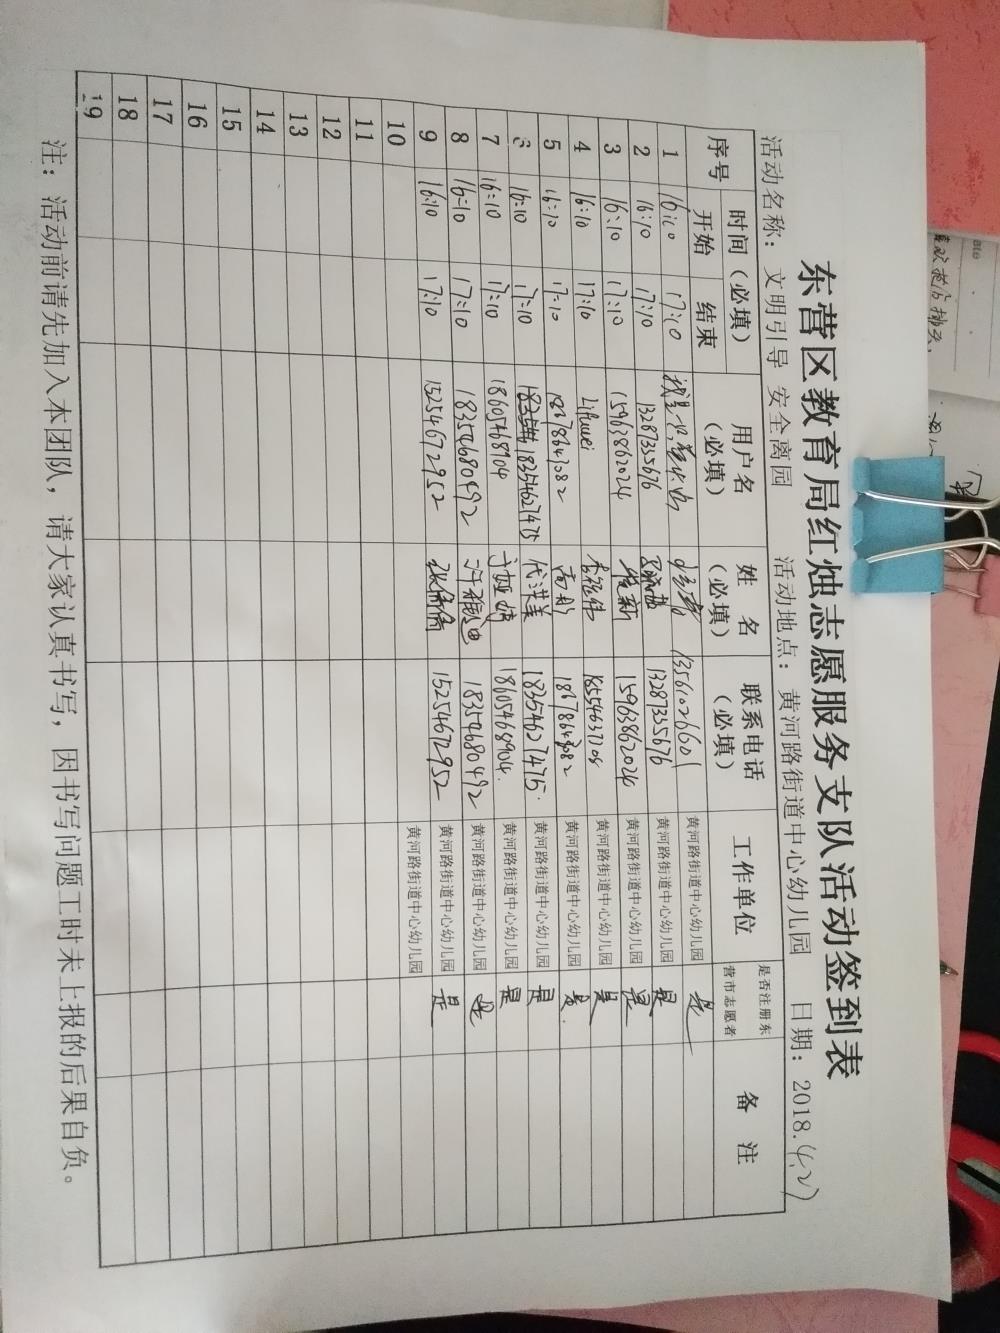 东营区教育局红烛志愿服务支队活动签到表
活动名称：文明引导 安全离园 活动地点：黄河路街道中心幼儿园 日期：2018.4.21
序号 时间（必填） 用户名（必填） 姓 名（必填） 联系电话（必填） 工作单位 是否注册东营市志愿者 备 注
开始 结束
1 16:10 17:10 13561026601 黄河路街道中心幼儿园 是
2 16:10 17:10 13287335676 13287335676 黄河路街道中心幼儿园 是
3 16:10 17:10 15963862024 15963862024 黄河路街道中心幼儿园 是
4 16:10 17:10 Lifuwei 李福伟 黄河路街道中心幼儿园 是
5 16:10 17:10 18678643082 18678643082 黄河路街道中心幼儿园 是
6 16:10 17:10 18354627475 代洪美 18354627475 黄河路街道中心幼儿园 是
7 16:10 17:10 18605468904 18605468904 黄河路街道中心幼儿园 是
8 16:10 17:10 18354680492 18354680492 黄河路街道中心幼儿园 是
9 16:10 17:10 15254672952 张倩倩 15254672952 黄河路街道中心幼儿园 是
10 黄河路街道中心幼儿园
11
12
13
14
15
16
17
18
19
注：活动前请先加入本团队，请大家认真书写，因书写问题工时未上报的后果自负。